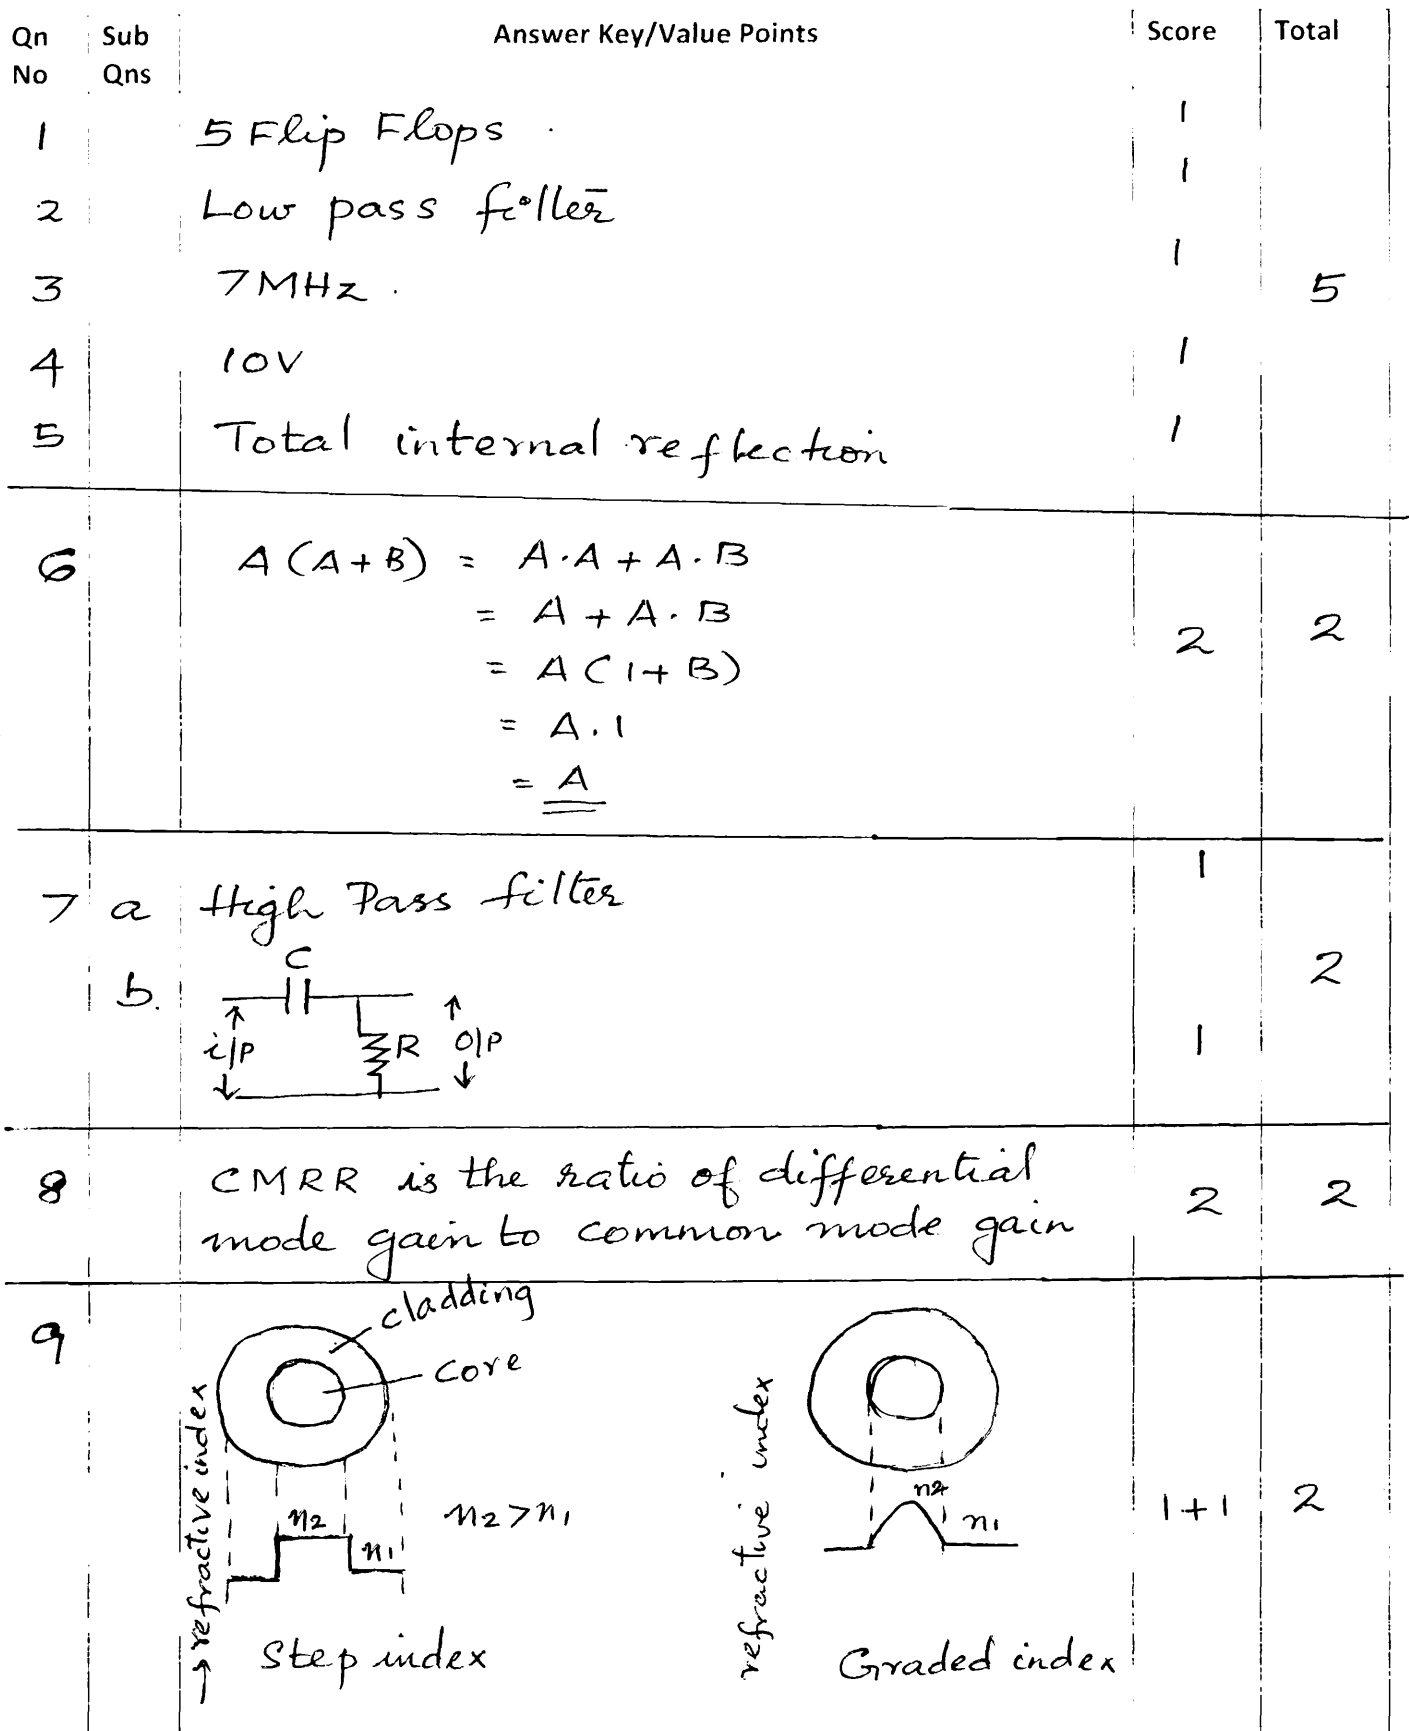 Qn No Sub Qns Answer Key/Value Points Score Total
1 5 Flip Flops . 1
2 Low pass filter 1
3 7MHz . 1 5
4 10V 1
5 Total internal reflection 1
6 A (A + B) = A . A + A . B
= A + A . B
= A ( 1 + B) 2 2
= A . 1
= A
7 a High Pass filter 1
C
b. 2
i/p R O/P 1
8 CMRR is the ratio of differential 2 2
mode gain to common mode gain
9 cladding
core
→ refractive index
n2 n1
n2 > n1
Step index
refractive index
n2 n1
Graded index
1 + 1 2